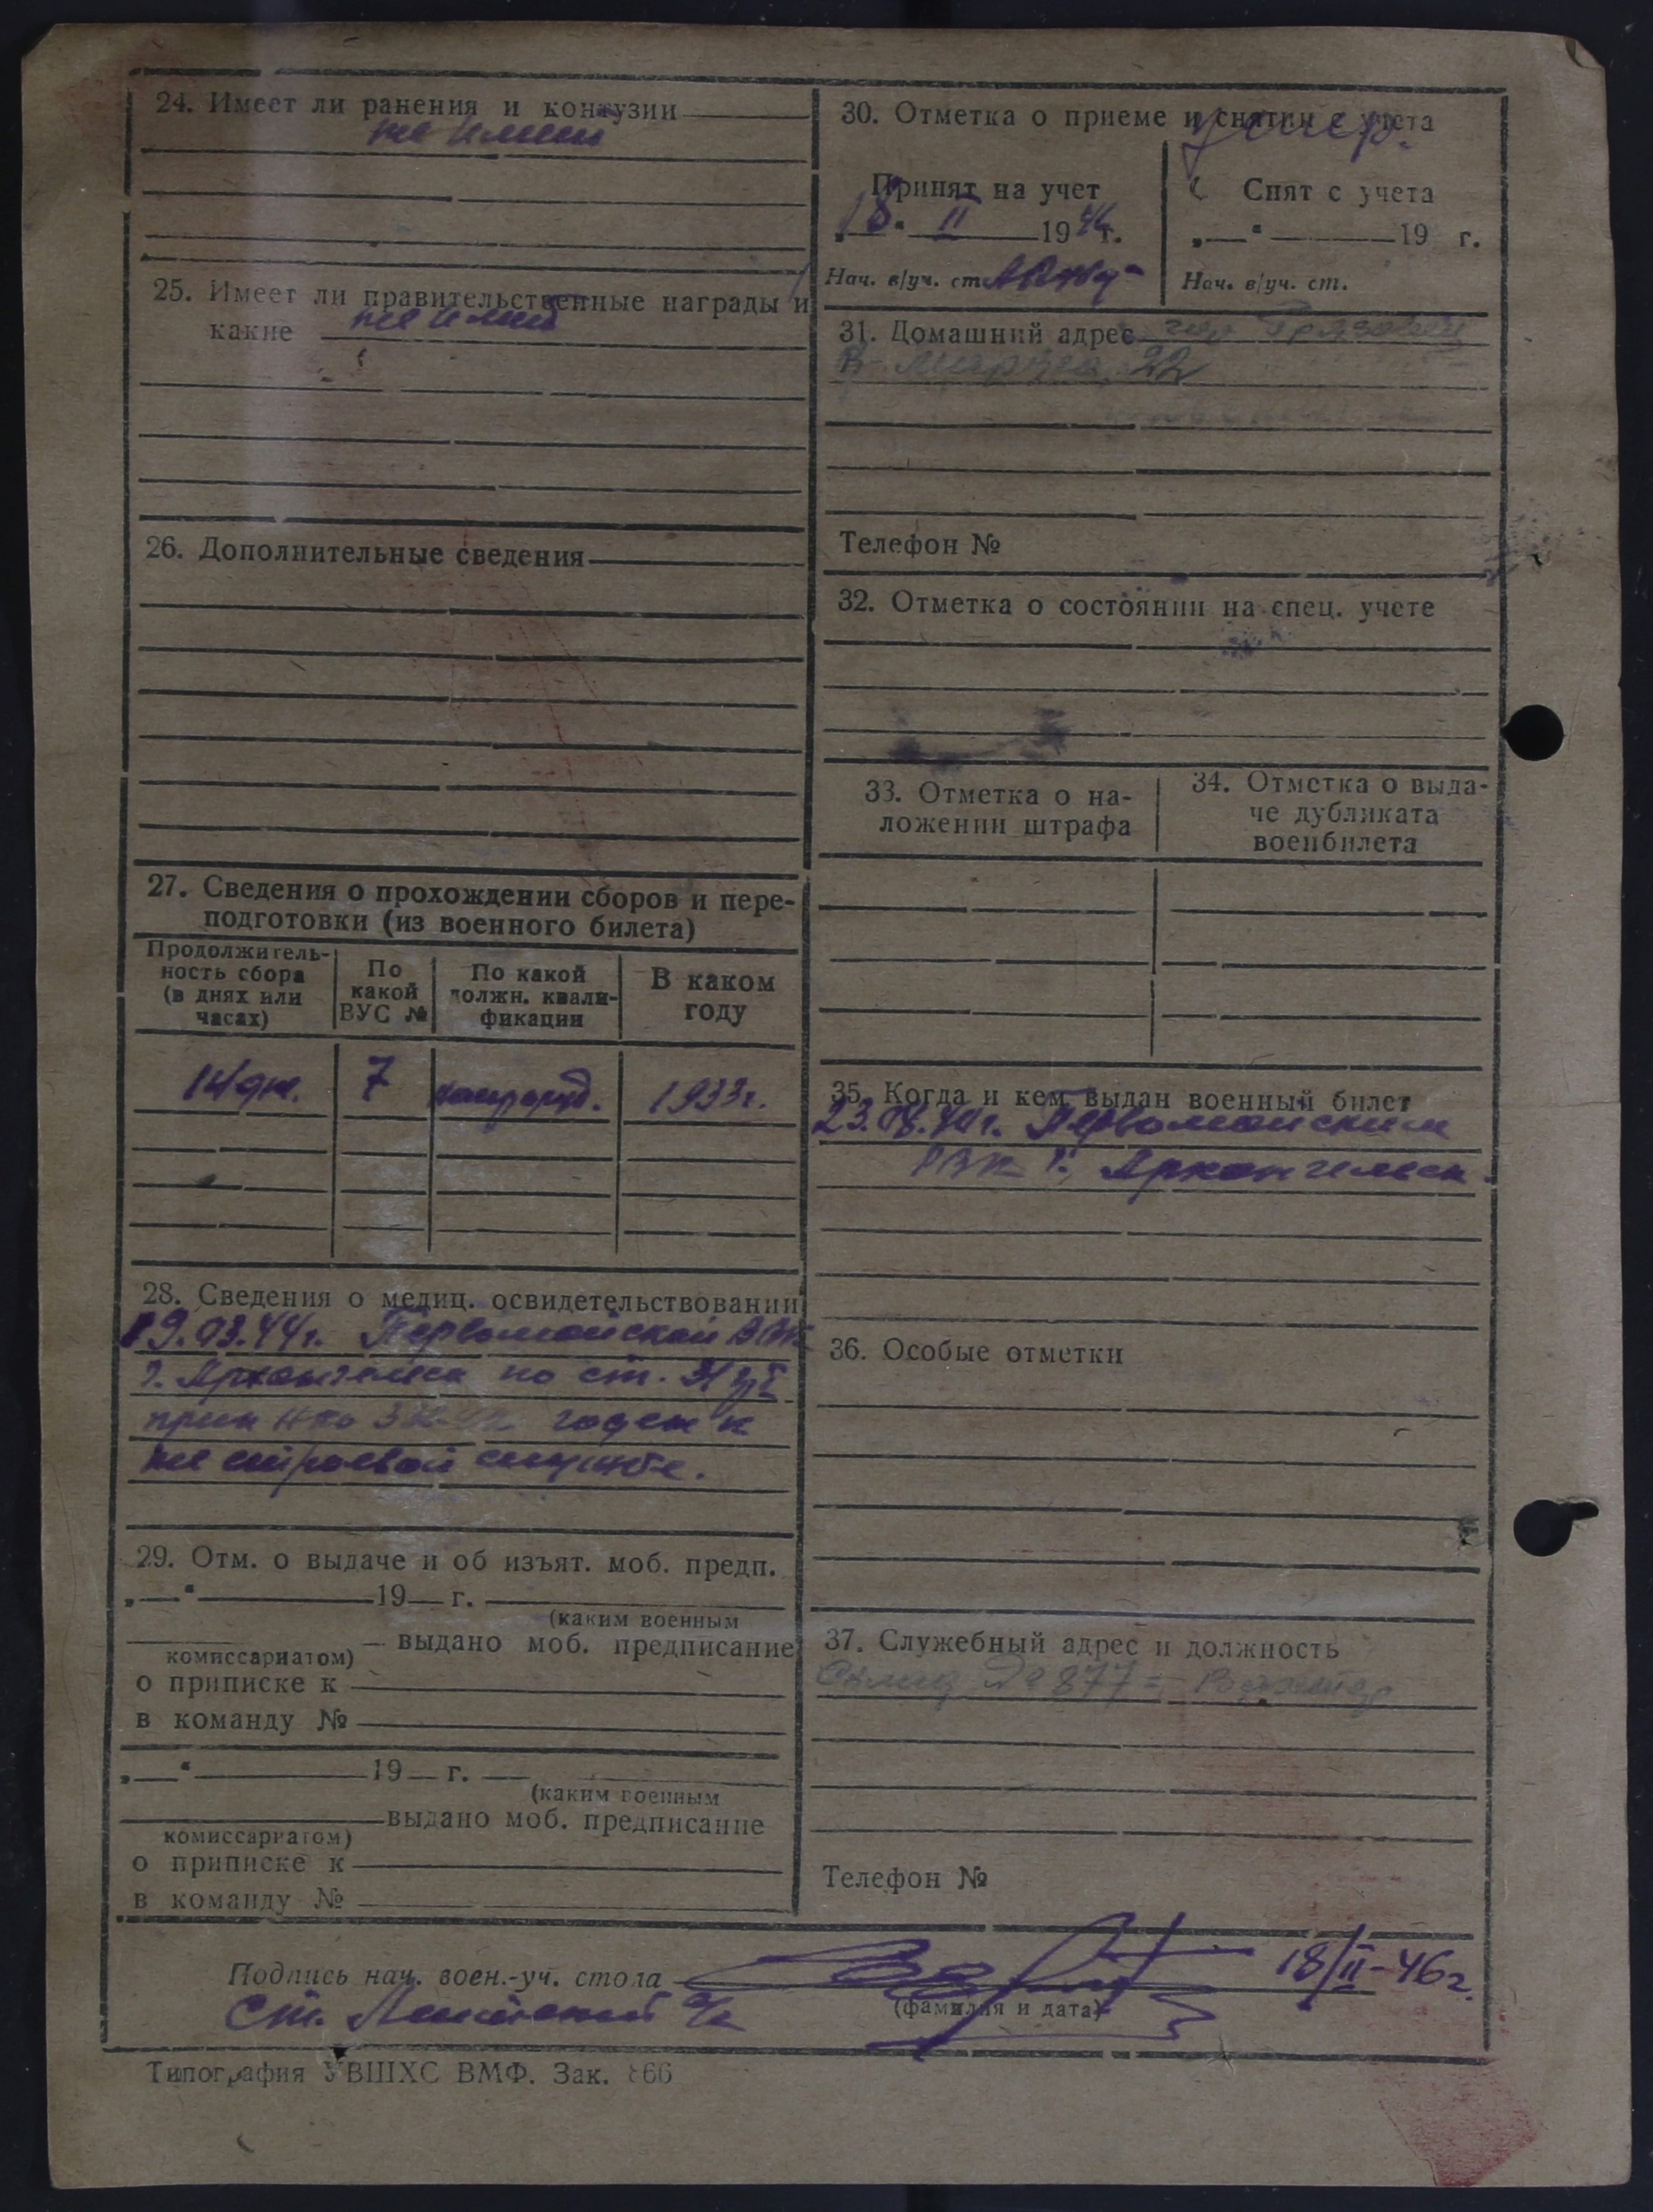 24. Имеет ли ранения и контузии
не имеет
25. Имеет ли правительственные награды и
какие не имеет
26. Дополнительные сведения
27. Сведения о прохождении сборов и пере-
подготовки (из военного билета)
Продолжитель-
ность сбора
(в днях или
часах)
По
какой
ВУС №
По какой
должн. квали-
фикации
В каком
году
14 дн. 7 1933г.
28. Сведения о медиц. освидетельствовании
19.03.44г. Первомайской
г. Архангельск по ст.
годен к
не строевой службе.
29. Отм. о выдаче и об изъят. моб. предп.
„—“ 19— г.
(каким военным
комиссариатом) — выдано моб. предписание
о приписке к
в команду №
„—“ 19— г.
(каким военным
комиссариатом) выдано моб. предписание
о приписке к
в команду №
30. Отметка о приеме и снятии с учета
Принят на учет
„18“ II 1946 г.
Нач. в/уч. ст.
Снят с учета
„—“ 19 г.
Нач. в/уч. ст.
31. Домашний адрес гор Грязовец
8-Марта, 22
Телефон №
32. Отметка о состоянии на спец. учете
33. Отметка о на-
ложении штрафа
34. Отметка о выда-
че дубликата
военбилета
35. Когда и кем выдан военный билет
Первомайским
РВК г. Архангельск.
36. Особые отметки
37. Служебный адрес и должность
Склад № 877 =
Телефон №
Подпись нач. воен.-уч. стола 18/II-46г.
(фамилия и дата)
Ст. Лейтенант
Типография УВШХС ВМФ. Зак. 866